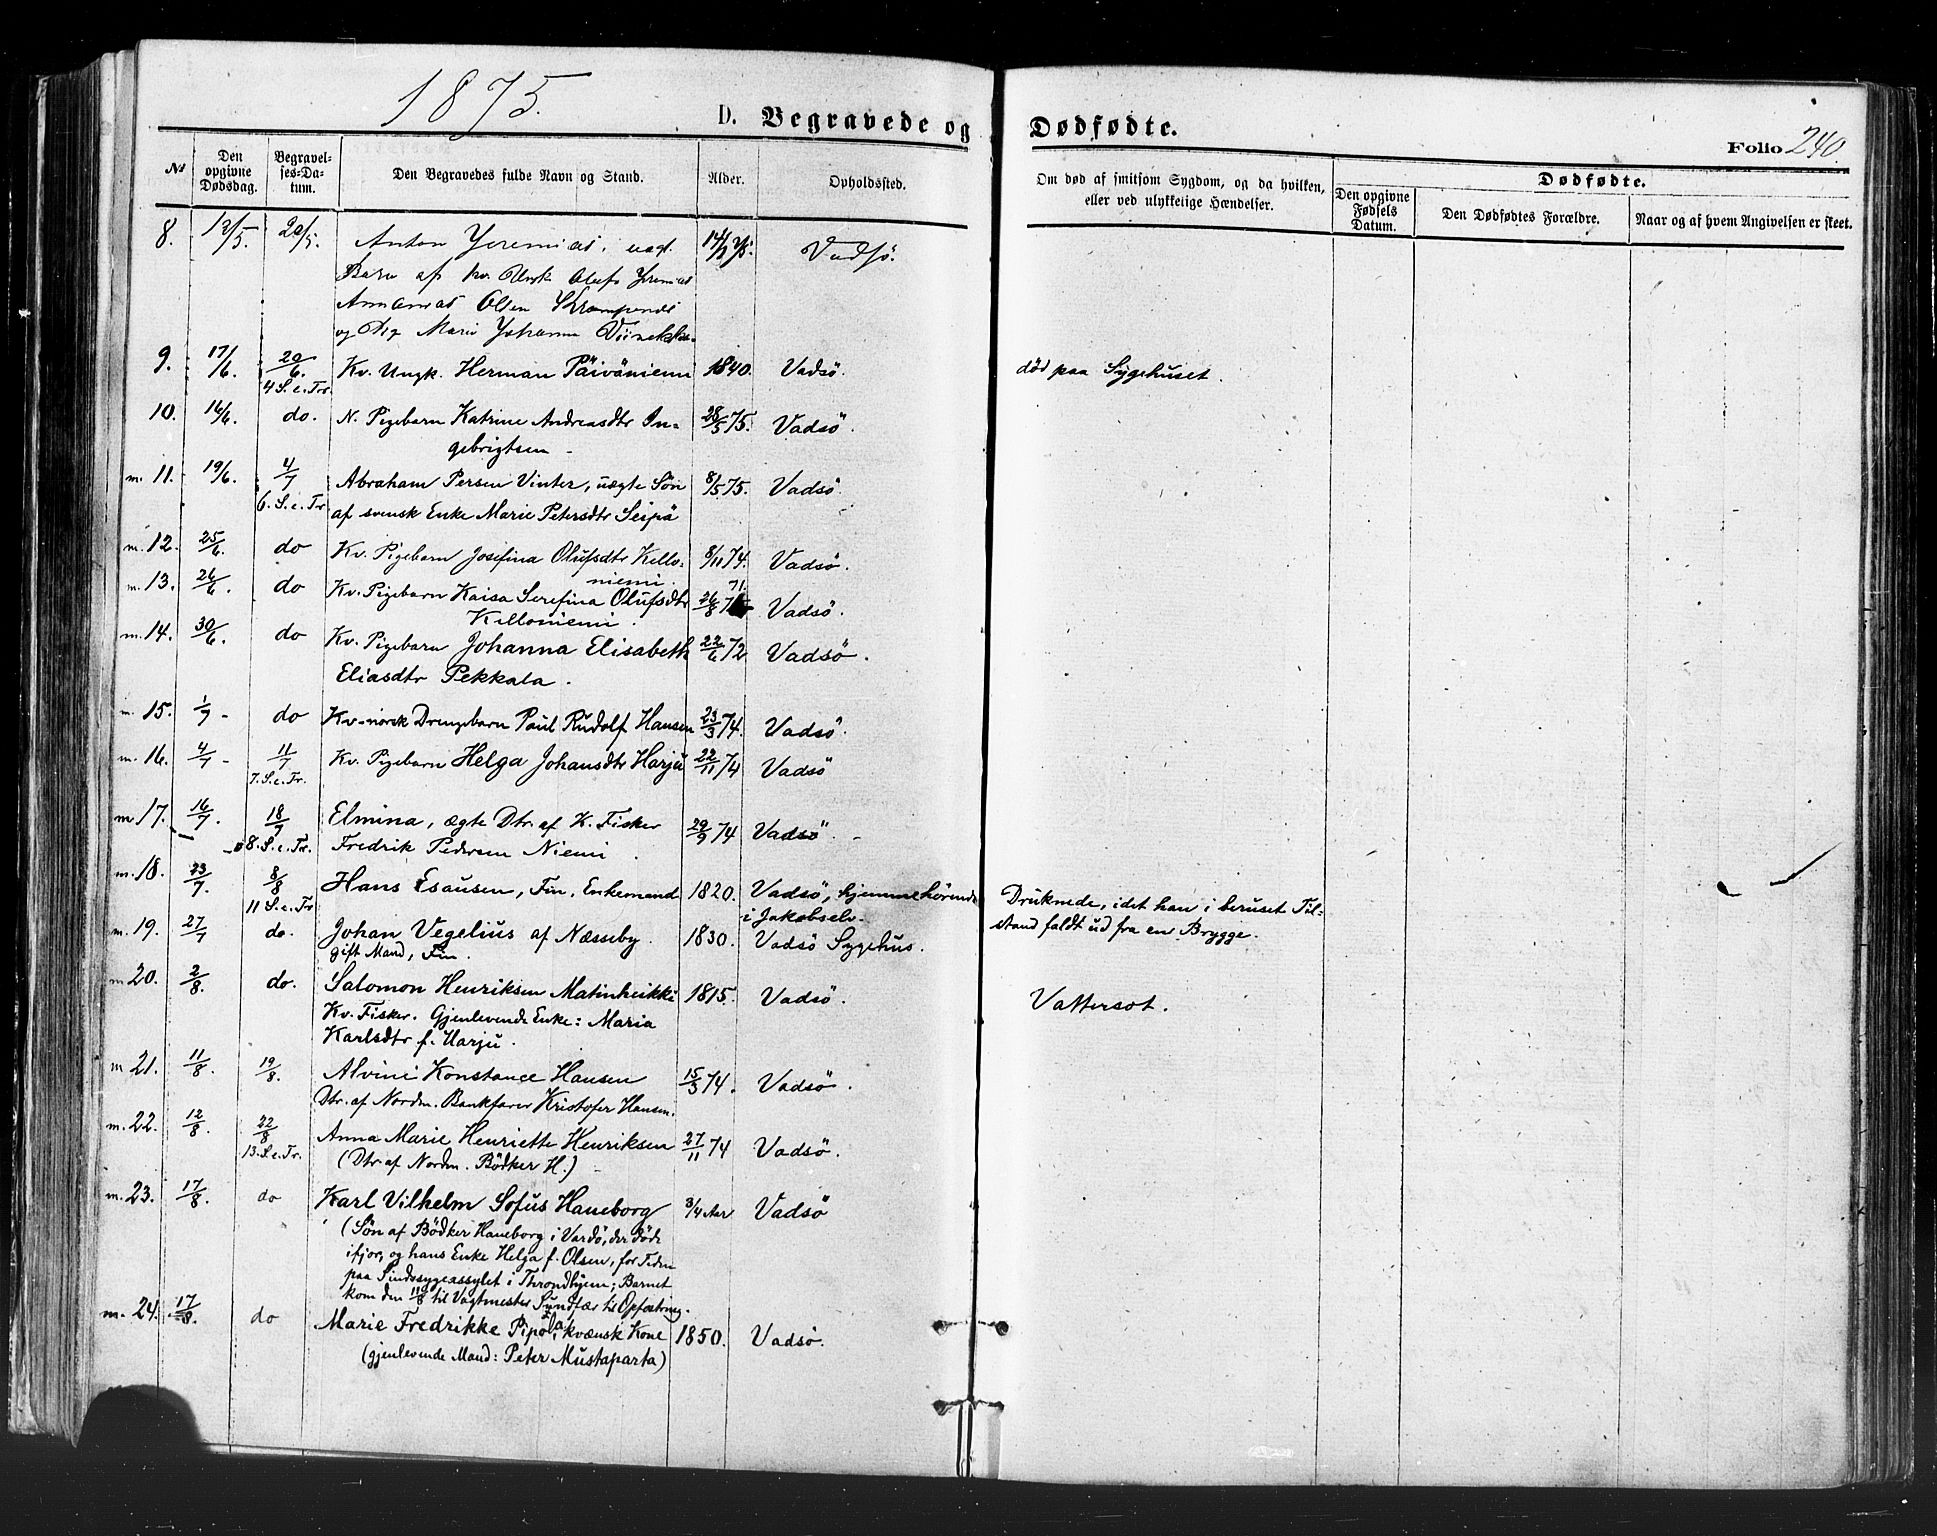 1875.
D. Begravede og Dødfødte.
Folio 240.
№
Den opgivne Dødsdag.
Begravelses-Datum.
Den Begravedes fulde Navn og Stand.
Alder.
Opholdssted.
Om død af smitsom Sygdom, og da hvilken,
eller ved ulykkelige Hændelser.
Den opgivne Fødsels Datum.
Dødfødte.
Den Dødfødtes Forældre.
Naar og af hvem Angivelsen er skeet.
8. 12/5. 20/5. Anton Jeremias, uægt. Vadsö.
Barn af kv. Ungk Olufs Jeremias
Ananias Olsen
og Pig Marie Johanna
9. 17/6. 20/6. Kv. Ungk. Herman Päivänieni 1840. Vadsö. död paa Sygehuset.
4 S. e. Tr.
10. 16/6. do. N. Pigebarn Katrine Andreasdtr In- 28/5 75. Vadsö.
gebrigtsen
m. 11. 19/6. 4/7 Abraham Persen Vinter, uægte Sön 8/5 75. Vadsö.
6. S. e. Tr af svensk Enke Marie Petersdtr Seipä
m. 12. 25/6. do Kv. Pigebarn Josefina Olufsdtr Kello- 8/11 74. Vadsö.
niemi.
m. 13. 26/6. do Kv. Pigebarn Kaisa Serefina Olufsdtr 26/8 71. Vadsö.
Kelloniemi.
m. 14. 30/6. do Kv. Pigebarn Johanna Elisabeth 22/6 72 Vadsö.
Eliasdtr Pekkala.
m. 15. 1/7 - do Kv-norsk Drengebarn Paul Rudolf Hansen 23/3 74. Vadsö.
m. 16. 4/7 - 11/7 Kv. Pigebarn Helga Johansdtr Harju 22/11 74 Vadsö
7. S. e. Tr.
m 17. 16/7. 18/7 Elmina, ægte Dtr. af K. Fisker 29/9 74 Vadsö.
8. S. e. Tr. Fredrik Pedersen Niemi.
m. 18. 23/7. 8/8 Hans Esausen, Fin, Enkemand 1820. Vadsö, hjemmehörende Druknede, idet han i beruset Til-
11 S. e. Tr i Jakobselv. stand faldt ud fra en Brygge.
m. 19. 27/7 do. Johan Vegelius af Næsseby. 1830. Vadsö Sygehus.
gift Mand, Fin.
m 20. 2/8. do. Salomon Henriksen Matinheikki 1815. Vadsö. Vattersot.
Kv. Fisker. Gjenlevende Enke: Maria
Karlsdtr f. Harju.
m 21. 11/8. 19/8. Alvine Konstance Hansen 15/3 74. Vadsö.
Dtr. af Nordm. Bankfarer Kristofer Hansen.
m. 22. 12/8. 22/8 Anna Marie Henriette Henriksen 27/11 74 Vadsö.
13. S. e. Tr. (Dtr. af Nordm. Bödker H.)
m. 23. 17/8. do Karl Vilhelm Sofus Haneborg 3/4 Aar Vadsö
(Sön af Bödker Haneborg i Vardö, der döde
ifjor, og hans Enke Helga f. Olsen, for Tiden
paa Sindssygeassylet i Throndhjem; Barnet
kom den til Vagtmester Sundfær til Opfostring.
m. 24. 17/8. do Marie Fredrikke Pipola, kvænsk Kone 1850. Vadsö.
(gjenlevende Mand: Peter Mustaparta)